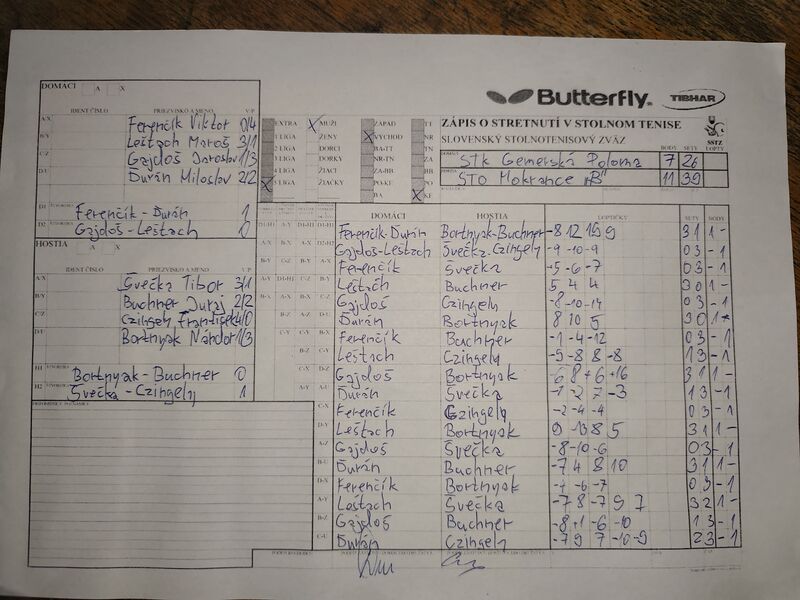 DOMÁCI A X
Butterfly. TIBHAR
IDENT ČÍSLO PRIEZVISKO A MENO V/P
A/X Ferenčík Viktor 0/4
B/Y Leštach Maroš 3/1
C/Z Gajdoš Jaroslav 1/3
D/U Ďurán Miloslav 2/2
D1 Ferenčík - Ďurán 1
D2 Gajdoš - Leštach 0
EXTRA X MUŽI ZÁPAD TT
1 LIGA ŽENY X VÝCHOD NR
2 LIGA DORCI BA-TT TN
3 LIGA DORKY NR-TN ZA
4 LIGA ŽIACI ZA-BB
X 5 LIGA ŽIAČKY PO-KE PO
BA X KE
ZÁPIS O STRETNUTÍ V STOLNOM TENISE
SLOVENSKÝ STOLNOTENISOVÝ ZVÄZ
SSTZ
BODY SETY LOPTY
STK Gemerská Poloma 7 26
STO Mokrance "B" 11 39
HOSTIA A X
IDENT ČÍSLO PRIEZVISKO A MENO V/P
A/X Švečka Tibor 3/1
B/Y Buchner Juraj 2/2
C/Z Czingely František 4/0
D/U Bortnyak Nándor 1/3
H1 Bortnyak - Buchner 0
H2 Švečka - Czingely 1
DOMÁCI HOSTIA LOPTIČKY SETY BODY
Ferenčík - Ďurán Bortnyak - Buchner -8 12 15 9 3 1 1 -
Gajdoš - Leštach Švečka - Czingely -9 -10 -9 0 3 - 1
Ferenčík Švečka -5 -6 -7 0 3 - 1
Leštach Buchner 5 4 4 3 0 1 -
Gajdoš Czingely -8 -10 -14 0 3 - 1
Ďurán Bortnyak 8 10 5 3 0 1 -
Ferenčík Buchner -1 -4 -12 0 3 - 1
Leštach Czingely -5 -8 8 -8 1 3 - 1
Gajdoš Bortnyak -6 8 +6 +16 3 1 1 -
Ďurán Švečka -1 -2 7 -3 1 3 - 1
C-X Ferenčík Czingely -2 -4 -4 0 3 - 1
D-Y Leštach Bortnyak 9 -13 8 5 3 1 1 -
A-Z Gajdoš Švečka -8 -10 -6 0 3 - 1
B-U Ďurán Buchner -7 4 8 10 3 1 1 -
D-X Ferenčík Bortnyak -6 -7 0 3 - 1
A-Y Leštach Švečka -7 8 -7 9 7 3 2 1 -
B-Z Gajdoš Buchner -8 +1 -6 -10 1 3 - 1
C-U Ďurán Czingely -7 9 7 -10 -9 2 3 - 1